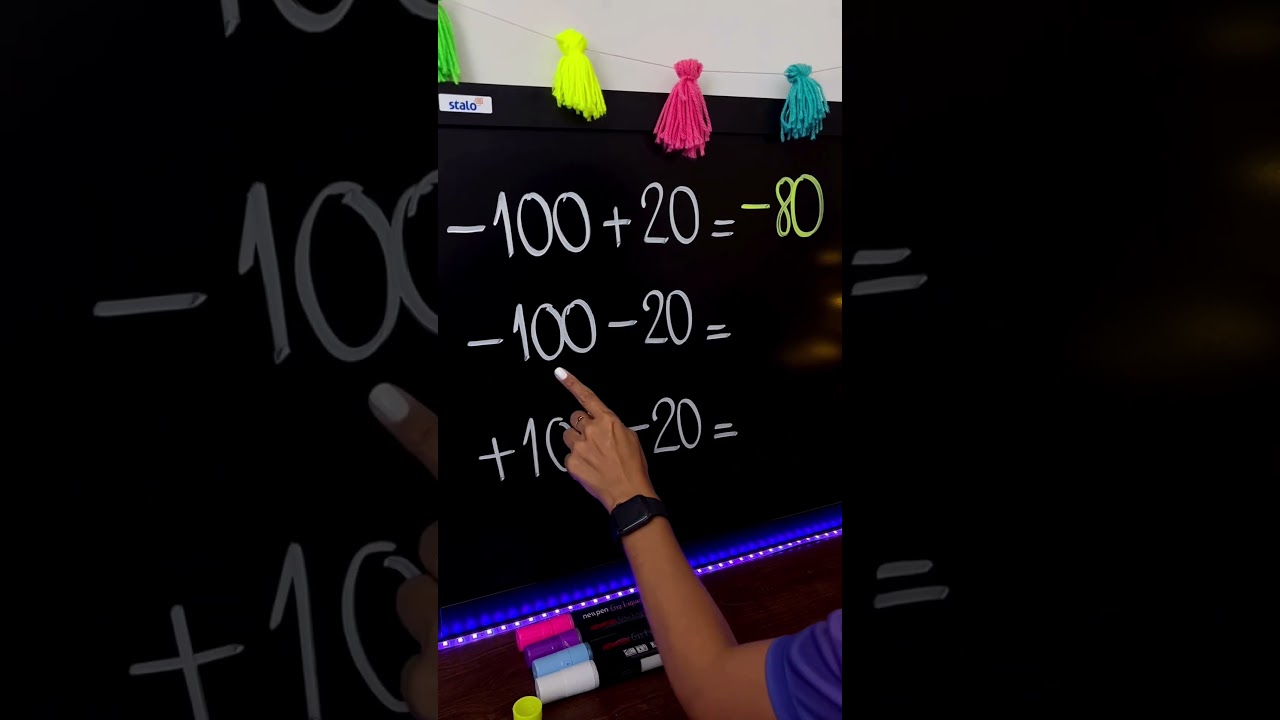 stalo
-100+20=-80
-100-20=
+10 -20=
newpen